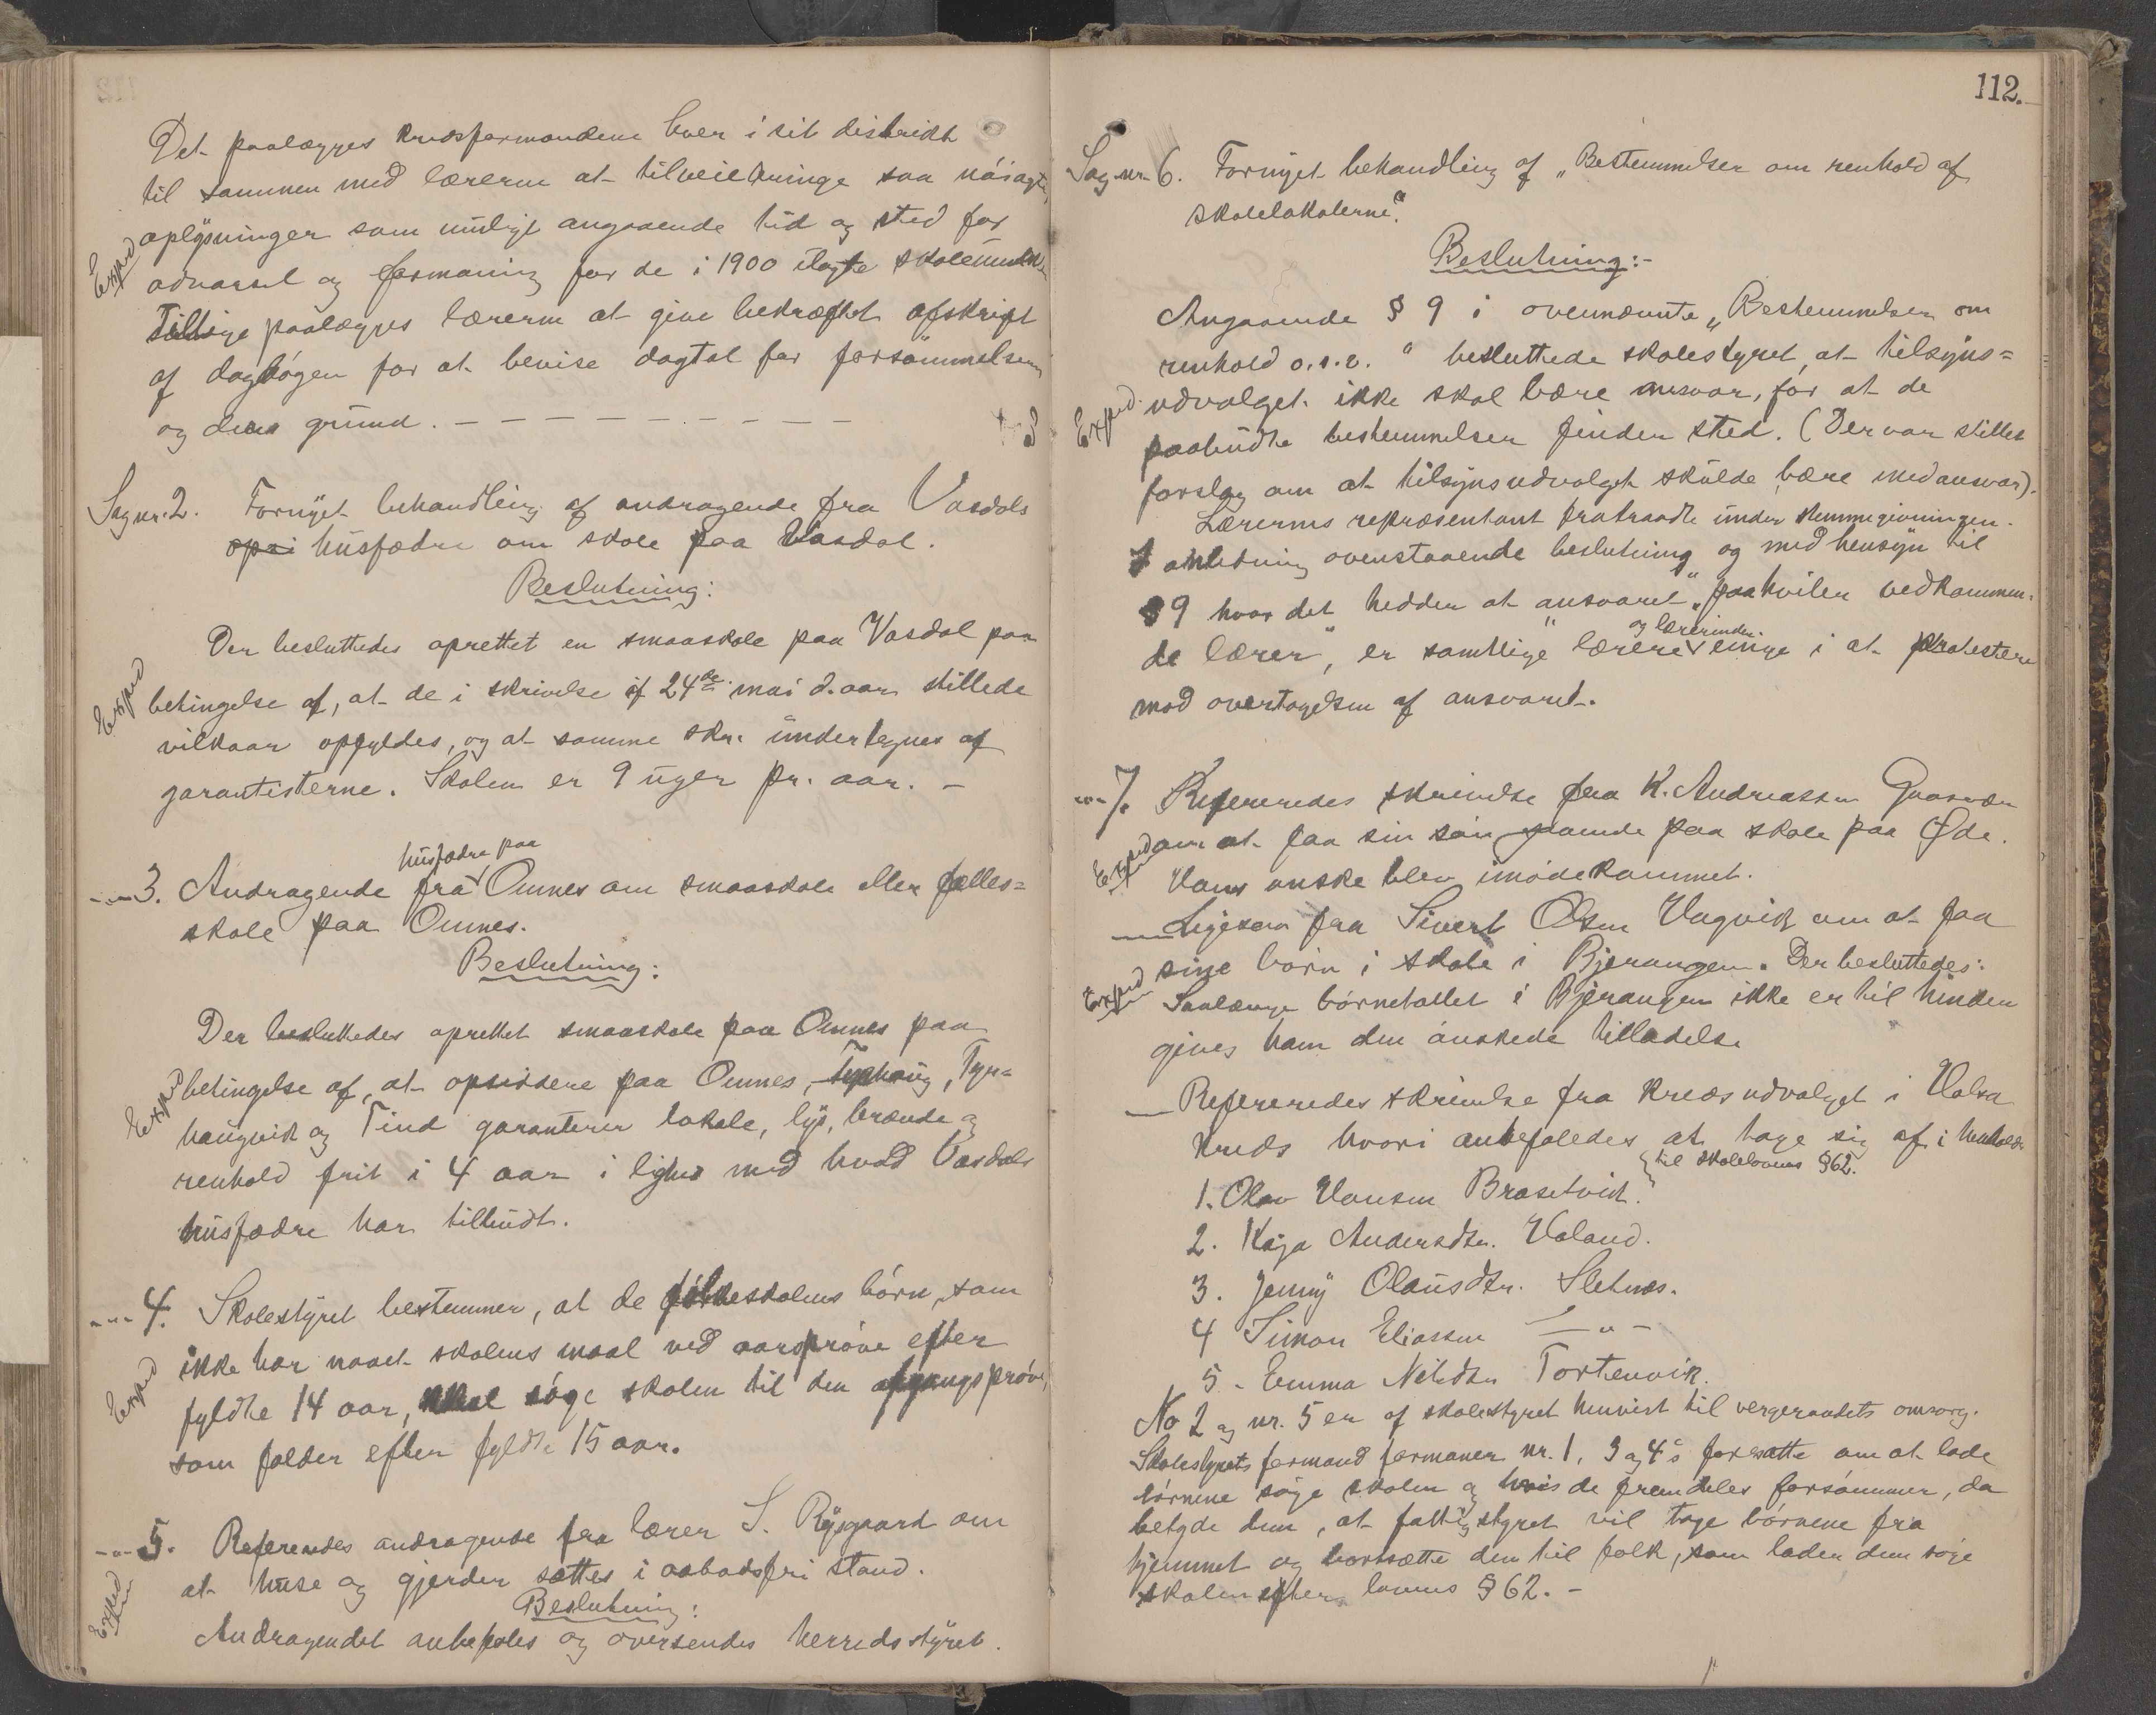 Det paalægges kredsformændene hver i sit distrikt
til sammen med lærerne at tilveiebringe saa nöiagtige
oplysninger som muligt angaaende tid og sted for
Exped
advarsel og formaning for de i 1900 ilagte skolemulkter
Tillige paalægges lærerne at give bekræftet afskrift
af dagbogen for at bevise dagtal for forsömmelsen
og dens grund. — — — — — — — — —
Sag nr. 2. Fornyet behandling af andragende fra Vasdals
opsi husfædre om skole paa Vasdal.
Beslutning:
Der besluttedes oprettet en smaaskole paa Vasdal paa
Exped
betingelse af, at de i skrivelse af 24de mai d. aar stillede
vilkaar opfyldes, og at samme skr. undertegnes af
garantisterne. Skolen er 9 uger pr. aar. —
husfædre paa
-"- 3. Andragende fra Onnes om smaaskole eller fælles=
skole paa Onnes.
Beslutning:
Der besluttedes oprettet smaaskole paa Onnes paa
Exped
betingelse af, at opsiddere paa Onnes, Typhaug, Typ=
haugvik og Tind garanterer lokale, lys, brænde og
renhold frit i 4 aar i lighed med hvad Vasdals
husfædre har tilbudt.
-"- 4. Skolestyret bestemmer, at de folkeskolens börn, som
Exped
ikke har naaet skolens maal ved aarspröve efter
fyldte 14 aar, skal söge skolen til den afgangspröve,
som falder efter fyldte 15 aar.
-"- 5. Refereredes andragende fra lærer S. Rysgaard om
at huse og gjerder sættes i aabodsfri stand.
Exped
Beslutning:
Andragendet anbefales og oversendes herredsstyret.
112.
Sag nr. 6. Fornyet behandling af „Bestemmelser om renhold af
skolelokalerne".
Beslutning:-
Angaaende § 9 i ovennævnte „Bestemmelser om
renhold o.s.v." besluttede skolestyret, at tilsyns=
Exped.
udvalget ikke skal bære ansvar, for at de
paabudte bestemmelser finder sted. (Der var stillet
forslag om at tilsynsudvalget skulde bære medansvar).
Lærernes repræsentant fratraadte under stemmegivningen.
I anledning ovenstaaende beslutning og med hensyn til
§ 9 hvor det hedder at "ansvaret" „paahviler vedkommen-
og lærerinder
de lærer", er samtlige lærere einige i at protestere
mod overtagelsen af ansvaret.
-"- 7. Refereredes skrivelse fra K. Andreassen Gaasvær
Exped
om at faa sin sön gaaende paa skole paa Öde.
Hans önske blev imödekommet.
— Ligesom fra Sivert Olsen Vagvik om at faa
sine börn i skole i Bjerangen. Der besluttedes:
Exped
Saalænge börnetallet i Bjerangen ikke er til hinder
gives ham den önskede tilladelse
— Refereredes skrivelse fra kredsudvalget i Valsa
kreds hvori anbefaledes at tage sig af i henhold
til skolelovens § 62.
1. Olav Hansen Brasetvik.
2. Kaja Andersdtr. Valand.
3. Jenny Olausdtr. Sletnes.
4 Simon Eliassen — " —
5 - Emma Nilsdtr Tortenvik.
No 2 og nr. 5 er af skolestyret henvist til vergeraadets omsorg.
Skolestyrets formand formaner nr. 1, 3 og 4's foresatte om at lade
börnene söge skolen og hvis de fremdeles forsömmer, da
betyde dem, at fattigstyret vil tage börnene fra
hjemmet og bortsætte dem til folk, som lader dem söge
skolen efter lovens § 62. —